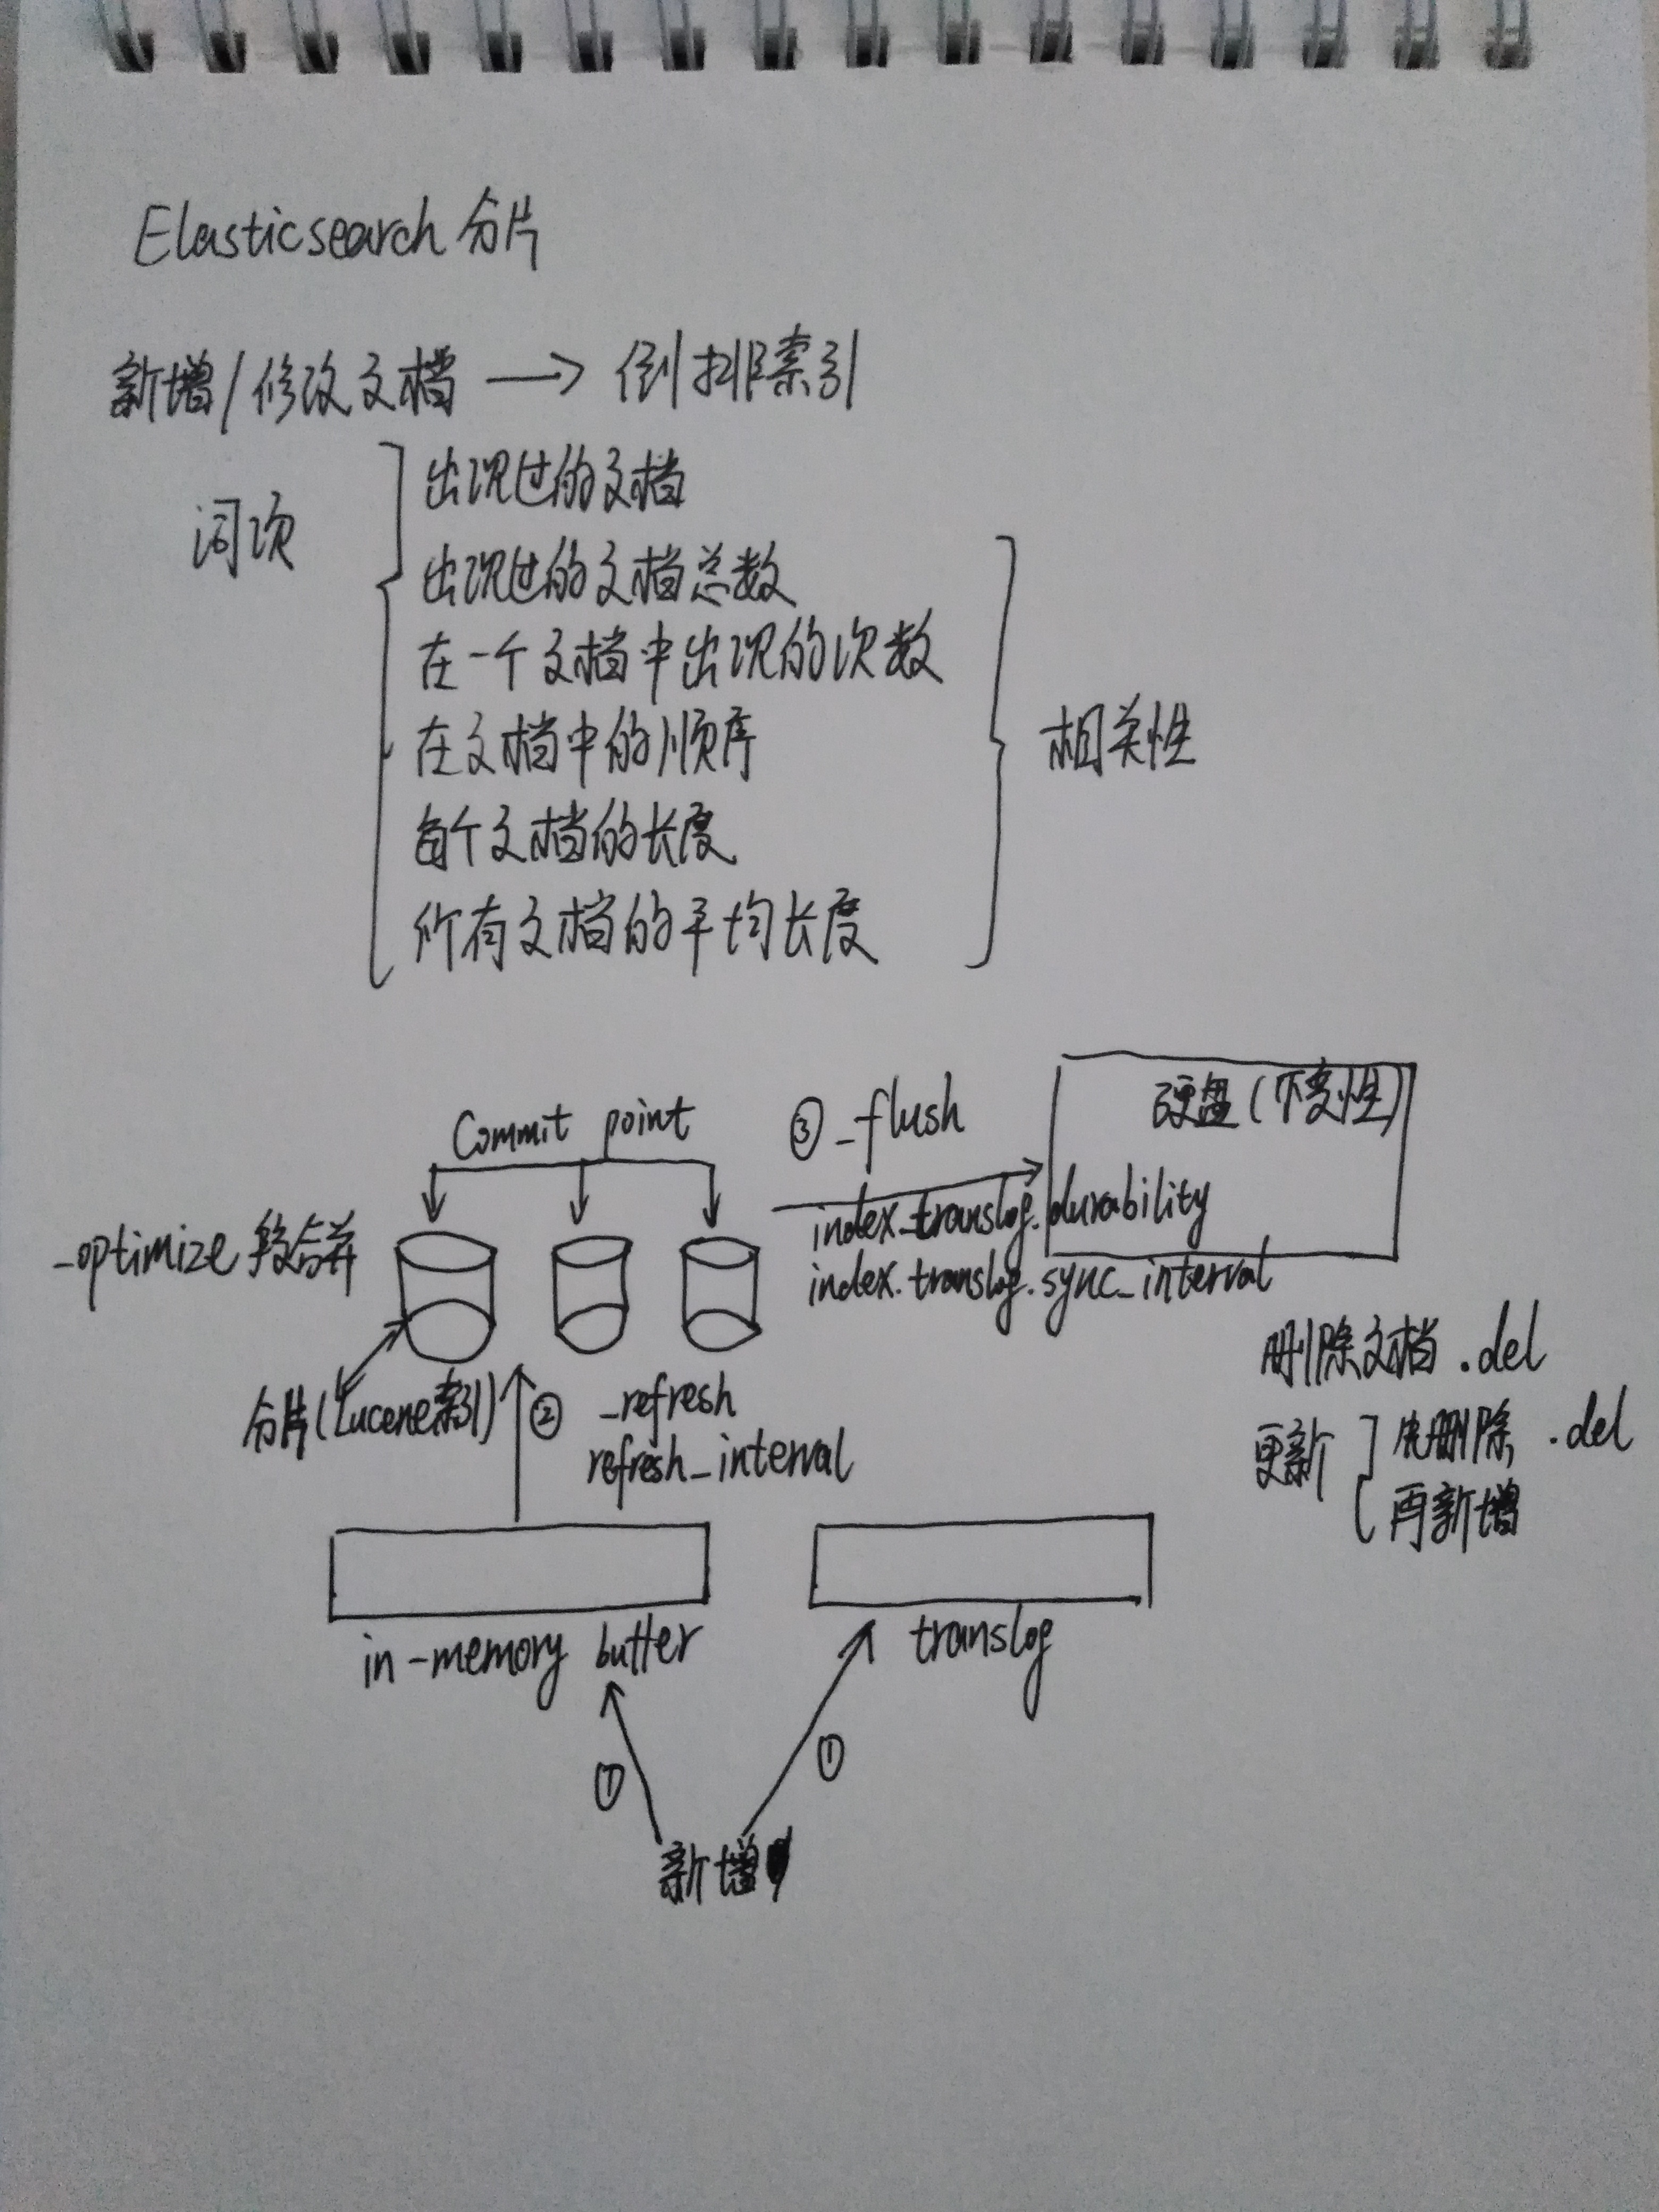 Elasticsearch 分片
新增/修改文档 → 倒排索引
词项
出现过的文档
出现过的文档总数
在一个文档中出现的次数
在文档中的顺序
每个文档的长度
所有文档的平均长度
相关性
Commit point
③ _flush
硬盘(不变性)
index_translog.durability
index.translog.sync_interval
_optimize 段合并
分片(Lucene索引)
② _refresh
refresh_interval
删除文档 .del
更新
先删除 .del
再新增
in-memory buffer
translog
①
①
新增